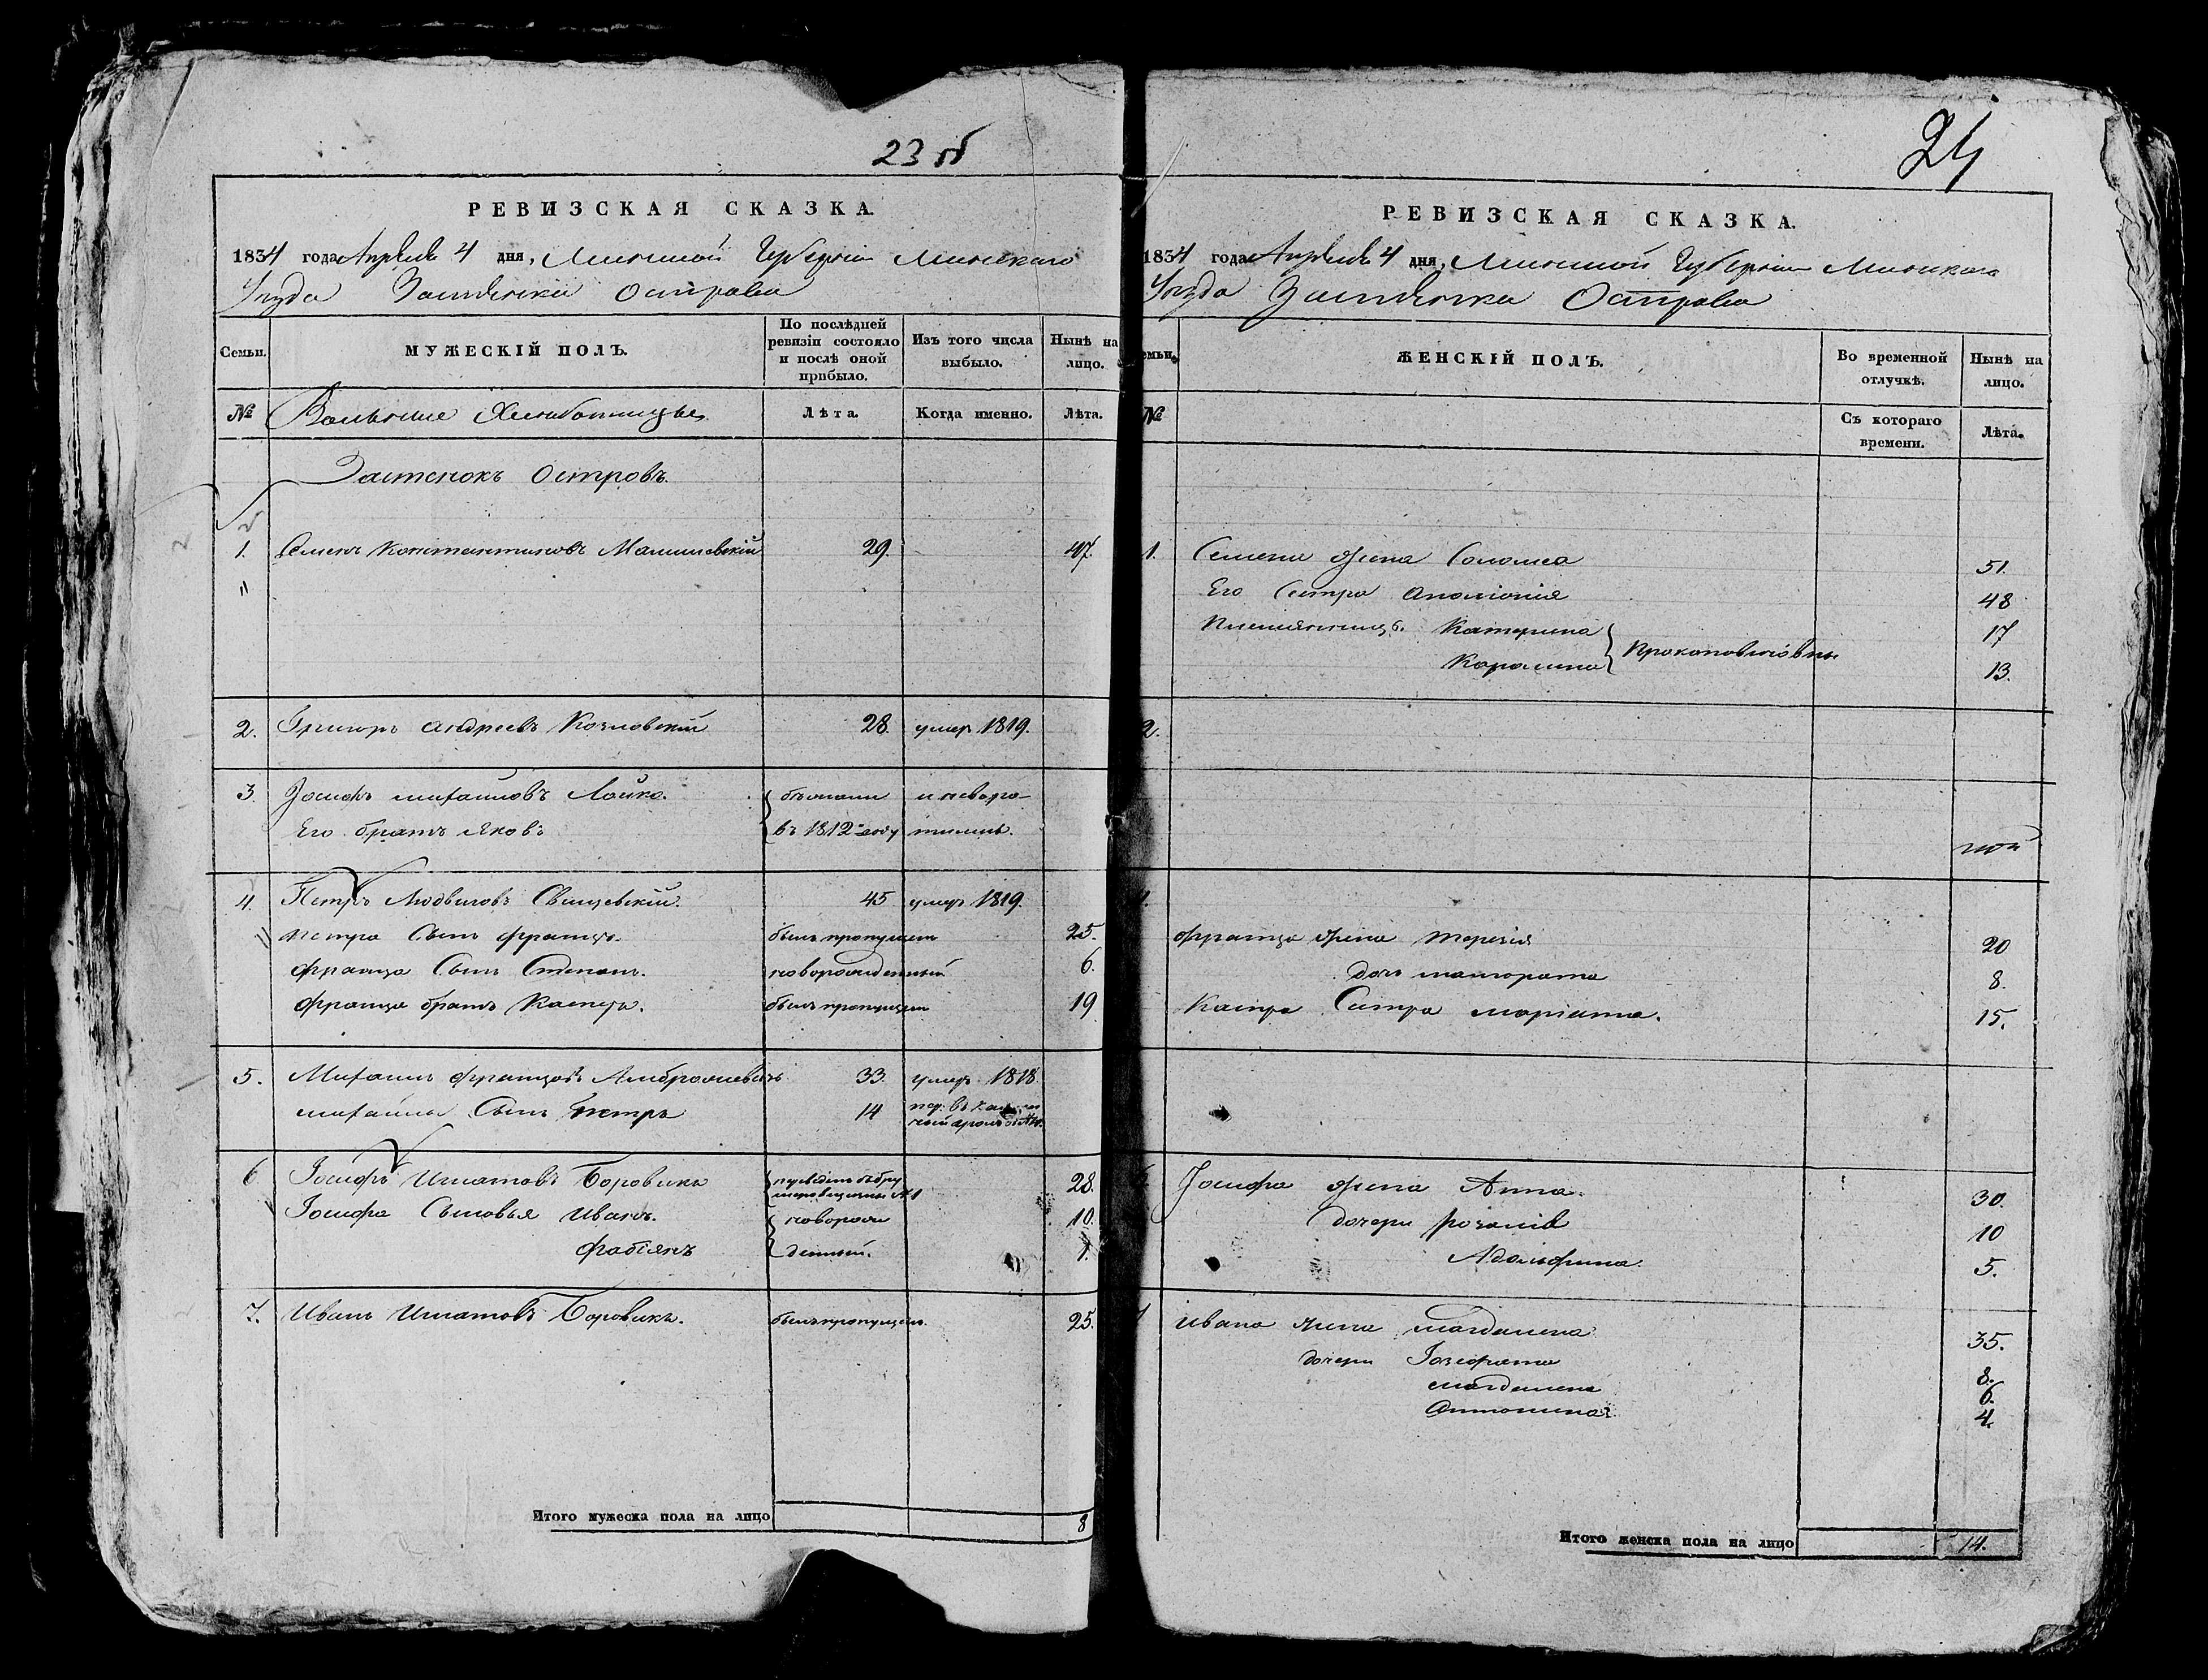 23 об
РЕВИЗСКАЯ СКАЗКА.
1834 года Апреля 4 дня, Минской Губернiи Минскаго
Уезда Застѣнка Острова
Семьи.
МУЖЕСКІЙ ПОЛЪ.
По послѣдней ревизіи состояло и послѣ оной прибыло.
Изъ того числа выбыло.
Нынѣ на лицо.
№
Вольные Хлебопашцы
Лѣта.
Когда именно.
Лѣта.
Застенокъ Островъ.
1. Семенъ Константиновъ 29. 47.
2. Григоръ Андреевъ Козловскій 28. умер 1819.
3. Іосифъ Михайловъ Лойко. бежали и невозра-
Его братъ Яковъ въ 1812 году тились.
4. Петръ Людвиговъ 45 умеръ 1819.
Петра Сынъ Францъ. былъ пропущен 25.
Франца Сынъ Степанъ. новорожденный 6.
Франца братъ Каспръ. былъ пропущен 19
5. Михаилъ Францовъ Амброжевичъ 33. умеръ 1818.
Михайлы Сынъ Петръ 14
6 Іосифъ Игнатовъ Боровикъ 28.
Іосифа Сыновья Иванъ. новорож 10.
Фабіянъ денный. 1.
7. Иванъ Игнатовъ Боровикъ. былъ пропущен. 25.
Итого мужеска пола на лицо 8
24
РЕВИЗСКАЯ СКАЗКА.
1834 года Апреля 4 дня, Минской Губернiи Минскаго
Уезда Застѣнка Острова
емьи.
ЖЕНСКІЙ ПОЛЪ.
Во временной отлучкѣ.
Нынѣ на лицо.
№
Съ котораго времени.
Лѣта.
1. Семена жена Соломея 51.
Его Сестра Аполіонія 48
Племянницы Катерина 17
Каролина Прокоповичовны 13.
2.
Франца жена Терезія 20
дочь 8.
Каспра Сестра Маріанна. 15.
Іосифа жена Анна. 30.
дочери Розалія 10
Адольфина. 5.
Ивана жена Магдалена 35.
дочери Іозефата 8.
Магдалена 6.
Антонина. 4.
Итого женска пола на лицо 14.